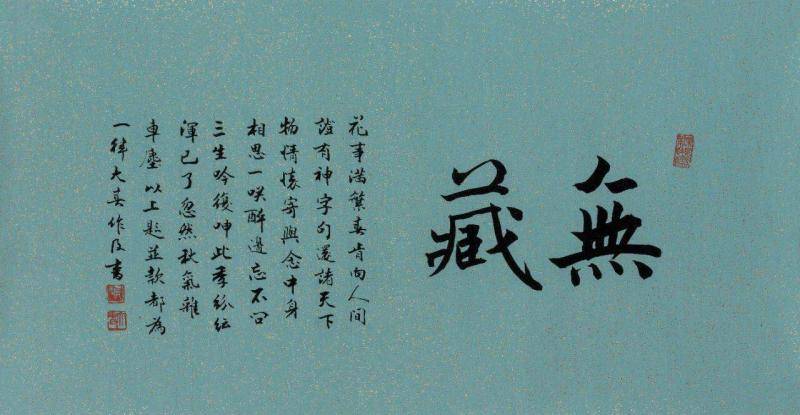 無藏
花事滿繁春肯向人間
證有神字句還諸天下
物情懷寄與念中身
相思一咲醉邊忘不口
三生吟復呻此季紛紜
渾已了忽然秋氣雜
車塵以上題並款都為
一律大春作及書